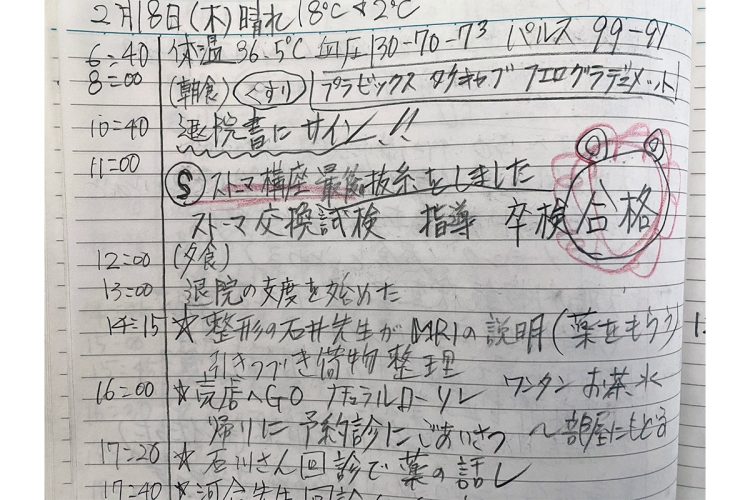 2月18日(木)晴れ 18℃ 2℃
6:40 体温 36.5℃ 血圧 130-70-73 パルス 99-91
8:00 (朝食) くすり プラビックス タケキャブ フェログラデュメット
10:40 退院書にサイン!!
11:00 S ストマ構座 最後抜糸をしました
ストーマ交換試検 指導 卒検合格
12:00 (夕食)
13:00 退院の支度を始めた
14:15 ☆整形の石井先生がMRIの説明(薬をもらう)
引きつづき荷物整理
16:00 ☆売店へGO ナチュラルローソン ワンタン お茶 水
帰りに予約診にごあいさつ 〜部屋にもどる
17:20 ☆石川さん回診で薬の話し
17:40 ☆河合先生回診